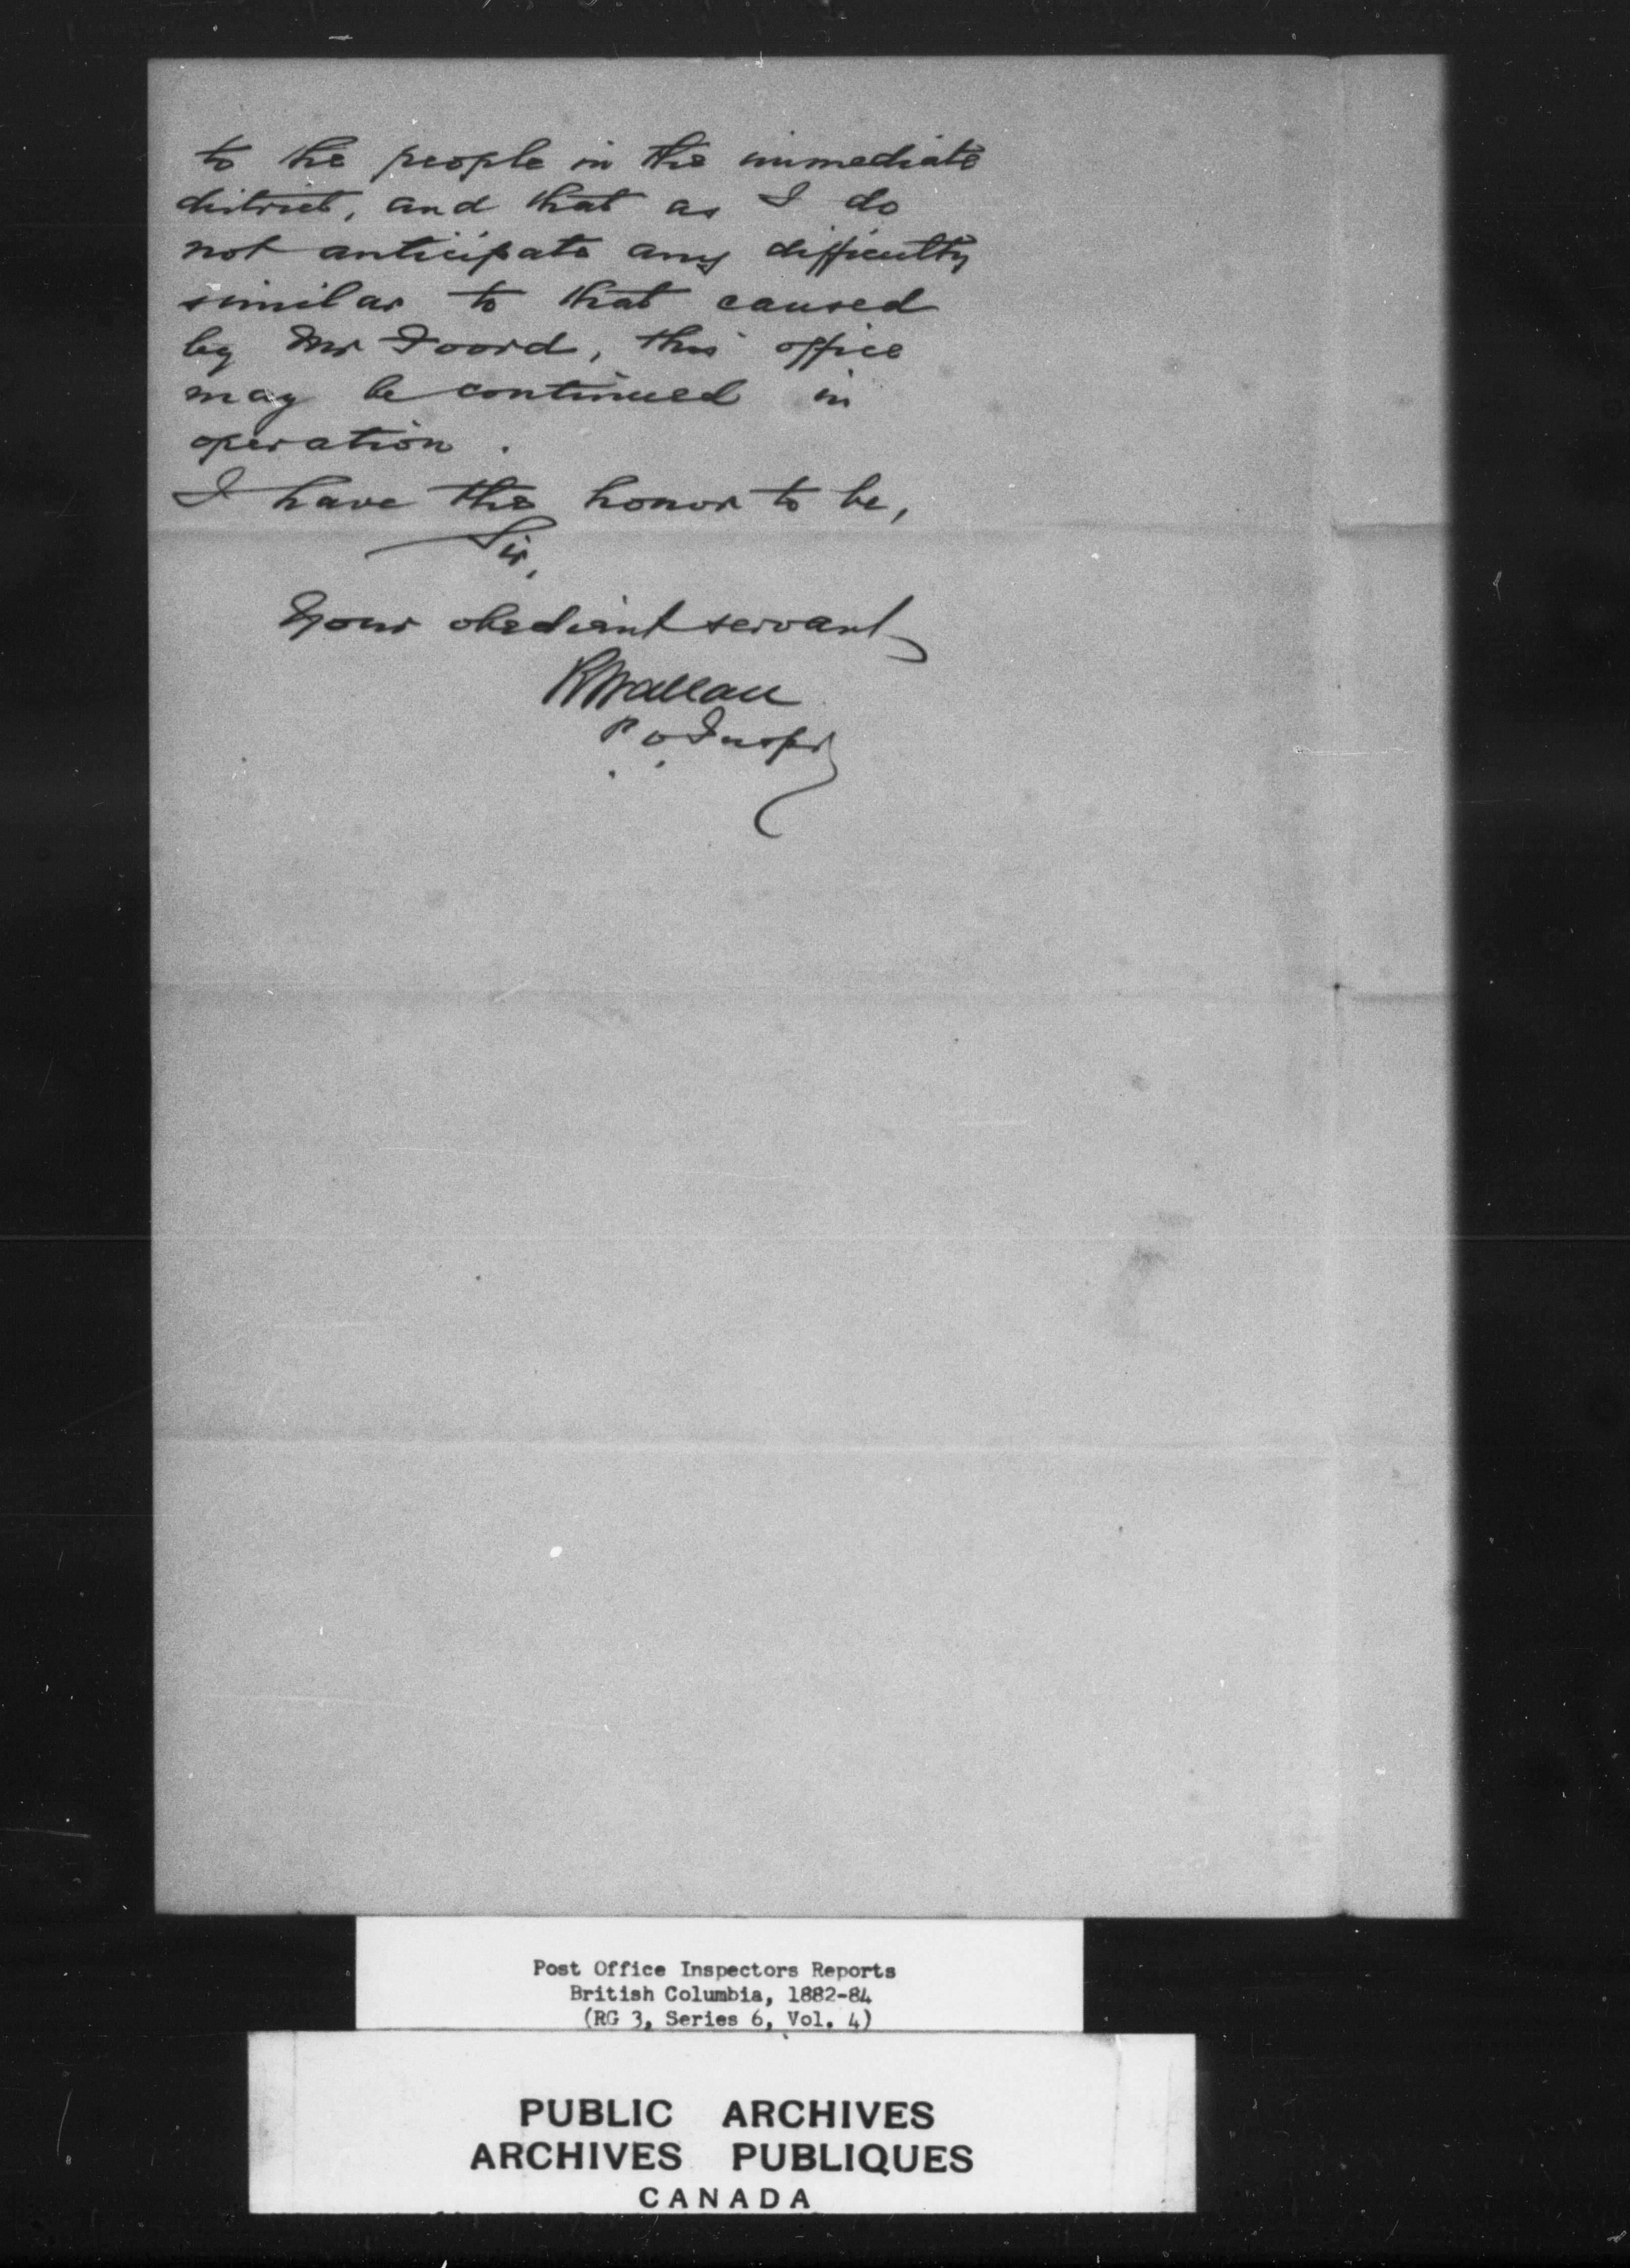 to the people in the immediate
district, and that as I do
not anticipate any difficulty
similar to that caused
by Mr Foord, this office
may be continued in
operation.
I have the honor to be,
Sir,
Your obedient servant
P. O. Inspr
Post Office Inspectors Reports
British Columbia, 1882-84
(RG 3, Series 6, Vol. 4)
PUBLIC ARCHIVES
ARCHIVES PUBLIQUES
CANADA